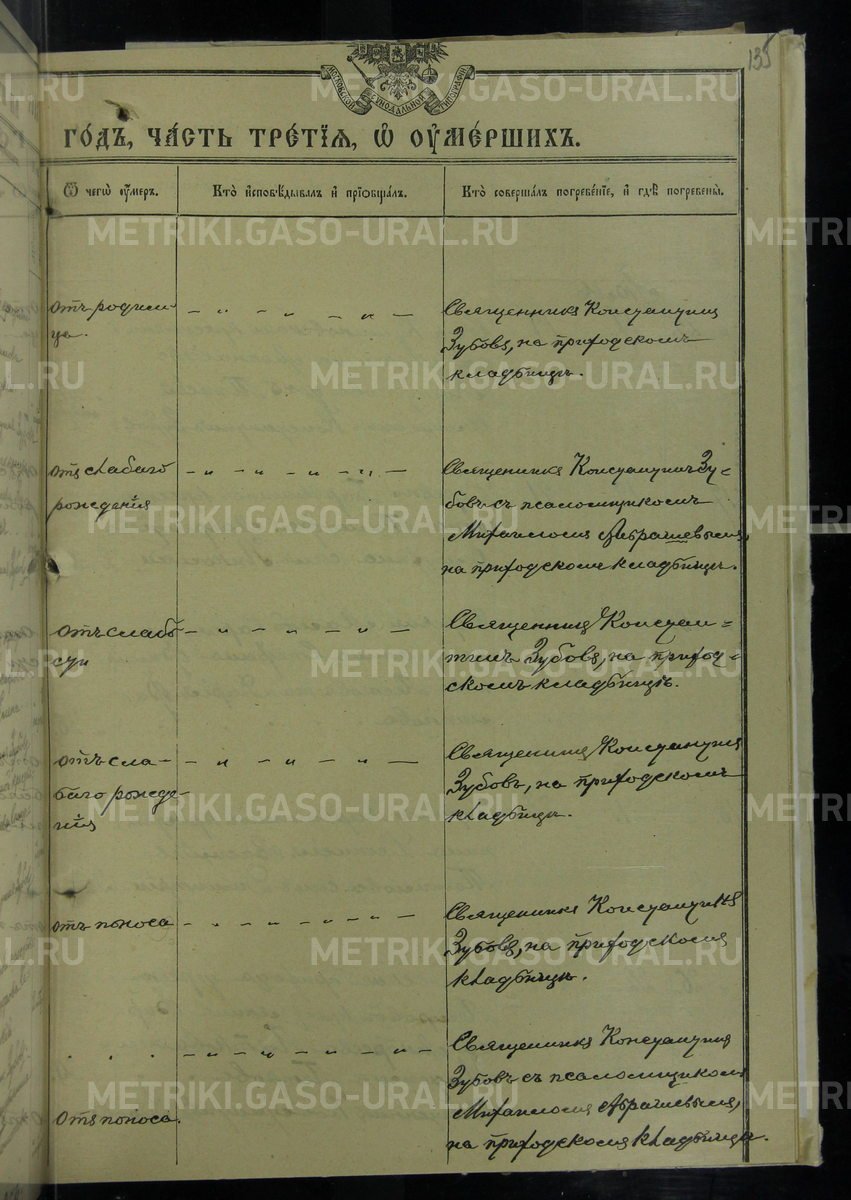 135
МОСКОВСКОЙ СѴНОДАЛЬНОЙ ТИПОГРАФІИ
METRIKI.GASO-URAL.RU
ГО́ДЪ, ЧА́СТЬ ТРЕ́ТІѦ, Ѡ҆ ОУ҆МЕ́РШИХЪ.
Ѿ чегѡ̀ оу҆́меръ.
Кто̀ и҆сповѣ́дывалъ и҆ прїѻбща́лъ.
Кто̀ соверша́лъ погребе́нїе, и҆ гдѣ̀ погребены̀.
отъ родим-
ца.
Священникъ Константинъ
Зубовъ, на приходскомъ
кладбищѣ.
отъ слабаго
рожденія
Священникъ Константинъ Зу-
бовъ съ псаломщикомъ
Михаиломъ Абрашевымъ,
на приходскомъ кладбищѣ.
отъ слабо
сти
Священникъ Констан-
тинъ Зубовъ, на приход-
скомъ кладбищѣ.
отъ сла-
баго рожде-
нія
Священникъ Константинъ
Зубовъ, на приходскомъ
кладбищѣ.
отъ поноса
Священникъ Константинъ
Зубовъ, на приходскомъ
кладбищѣ.
отъ поноса.
Священникъ Константинъ
Зубовъ съ псаломщикомъ
Михаиломъ Абрашевымъ,
на приходскомъ кладбищѣ.